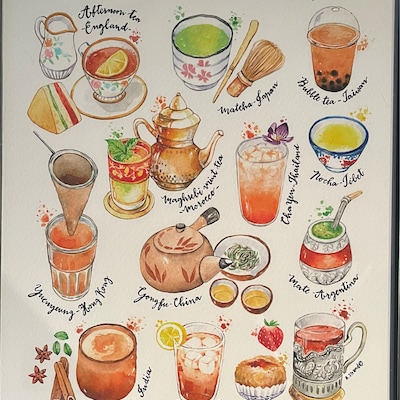 Afternoon tea
-England-
Matcha-Japan
Bubble tea-Taiwan
Maghrebi mint tea
-Morocco-
Cha Yen-Thailand
Pocha-Tibet
Yuenyeung-Hong Kong
Gongfu-China
Mate-Argentina
India